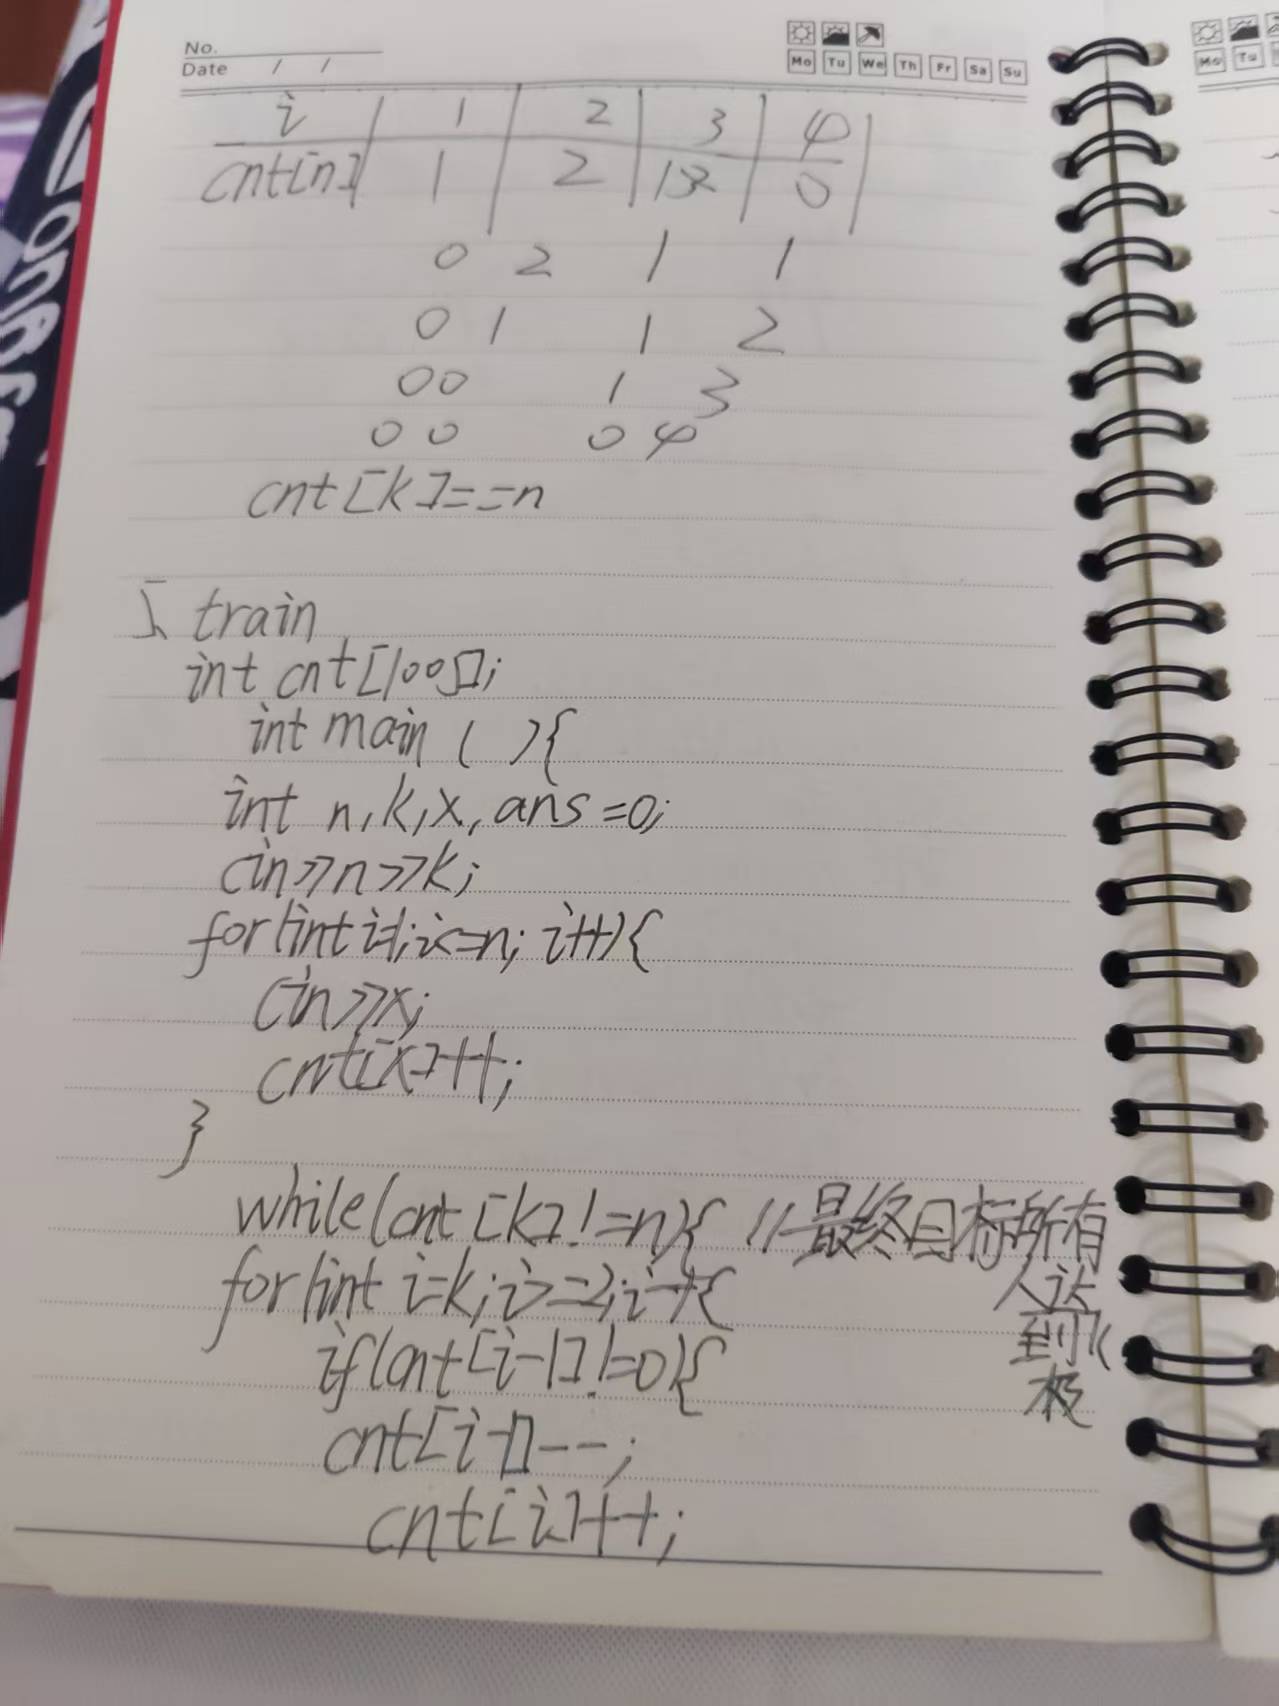 No.
Date / /
Mo Tu We Th Fr Sa Su
Mo Tu
i 1 2 3 4
cnt[n] 1 2 1 0
0 2 1 1
0 1 1 2
0 0 1 3
0 0 0 4
cnt[k]==n
5、train
int cnt[1005];
int main ( ){
int n,k,x,ans=0;
cin>>n>>k;
for(int i=1;i<=n;i++){
cin>>x;
cnt[x]++;
}
while(cnt[k]!=n){ //最终目标所有
人达
到k
级
for(int i=k;i>=2;i--){
if(cnt[i-1]!=0){
cnt[i-1]--;
cnt[i]++;